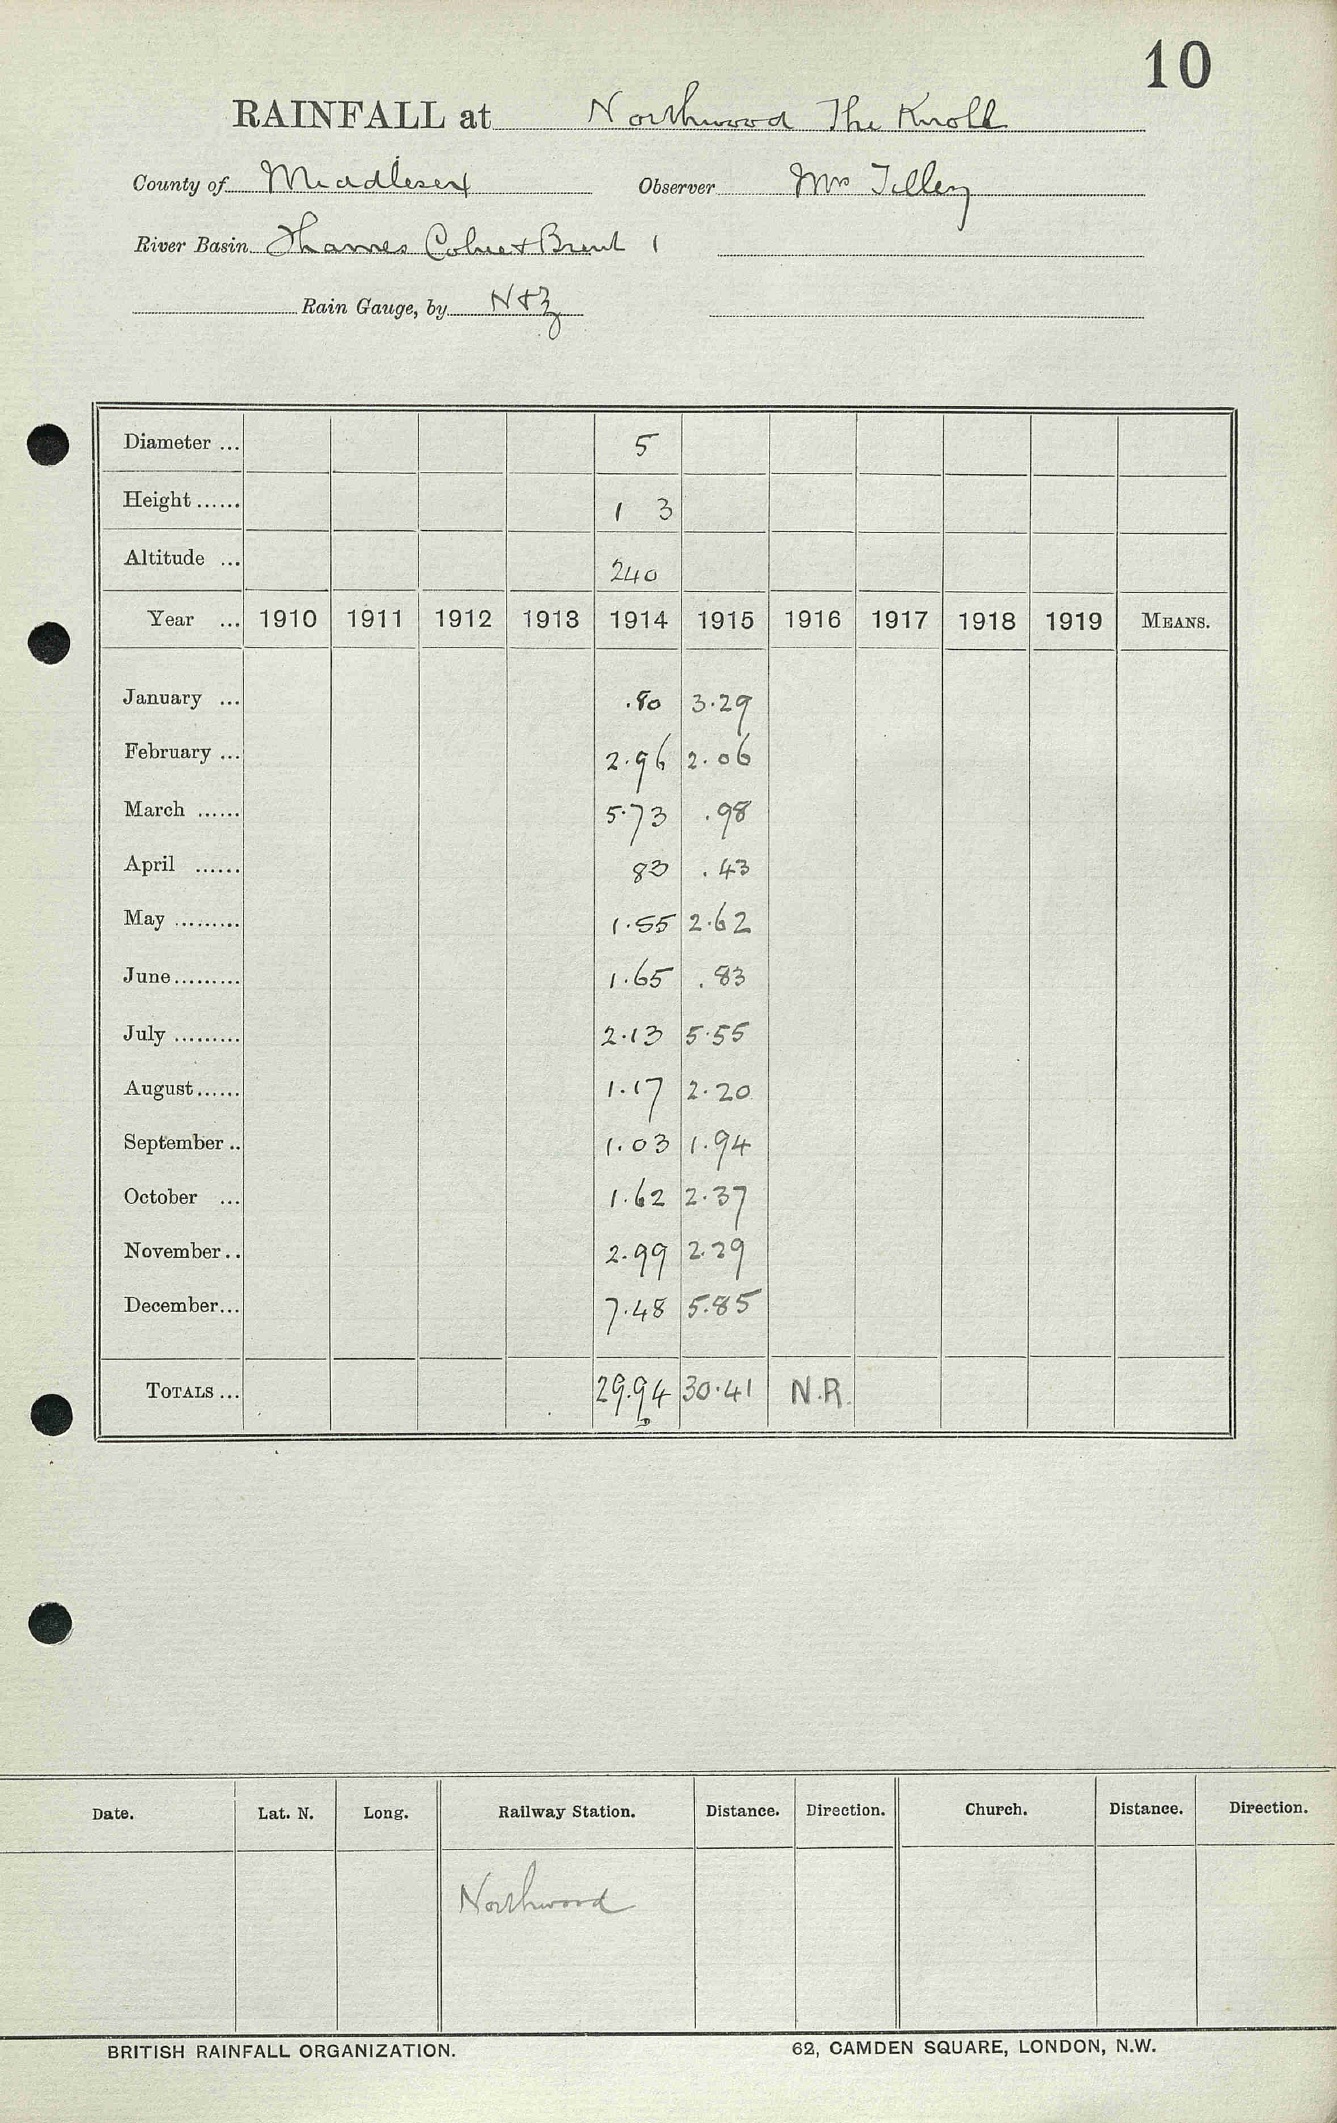 10
RAINFALL at Northwood The Knoll
County of Middlesex Observer Mrs Tilley
River Basin Thames Colne & Brent 1
Rain Gauge, by N & Z
Diameter ... 5
Height ...... 1 3
Altitude ... 240
Year ... 1910 1911 1912 1913 1914 1915 1916 1917 1918 1919 MEANS.
January ... .80 3.29
February ... 2.96 2.06
March ...... 5.73 .98
April ...... 83 .43
May ......... 1.55 2.62
June ......... 1.65 .83
July ......... 2.13 5.55
August ...... 1.17 2.20
September .. 1.03 1.94
October ... 1.62 2.37
November .. 2.99 2.29
December ... 7.48 5.85
TOTALS ... 29.94 30.41 N.R.
Date. Lat. N. Long. Railway Station. Distance. Direction. Church. Distance. Direction.
Northwood
BRITISH RAINFALL ORGANIZATION. 62, CAMDEN SQUARE, LONDON, N.W.